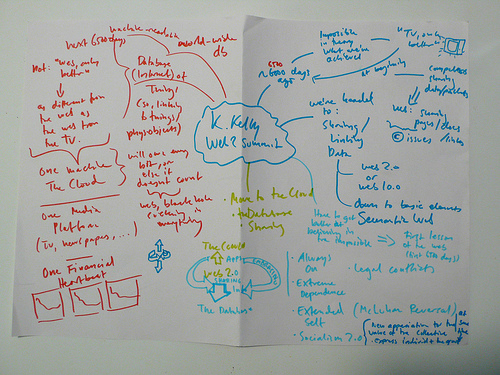 next 6500 days
machine-readable
world-wide
db
Not: "web, only
better"
as different from
the web as
the web from
the TV.
Database
(Internet) of
Things
(so, linking
physobjects)
One Machine
The Cloud
will own every
bit, or
else it
doesn't count
web, black hole
everything
One Media
Platform
(TV, newspapers, ...)
One Financial
Heartbeat
K. Kelly
Web 2 Summit
Move to the Cloud
the Database
Sharing
The Cloud
Web 2.0
The Database
6500
~6000 days
ago
Impossible
in theory
what we've
achieved
"TV, only
better"
at beginning
computers
sharing
data/packets
web: sharing
pages/docs
/links
© issues
we're headed
to:
Sharing /
Linking
Data
web 3.0
or
web 10.0
down to basic elements
Semantic Web
Have to get
better at
believing in
the impossible
First lesson
of the web
(first 6500 days)
• Always
On
- Legal conflicts
• Extreme
Dependence
• Extended (McLuhan Reversal)
Self
• Socialism 2.0
New appreciation to the
value of the collective